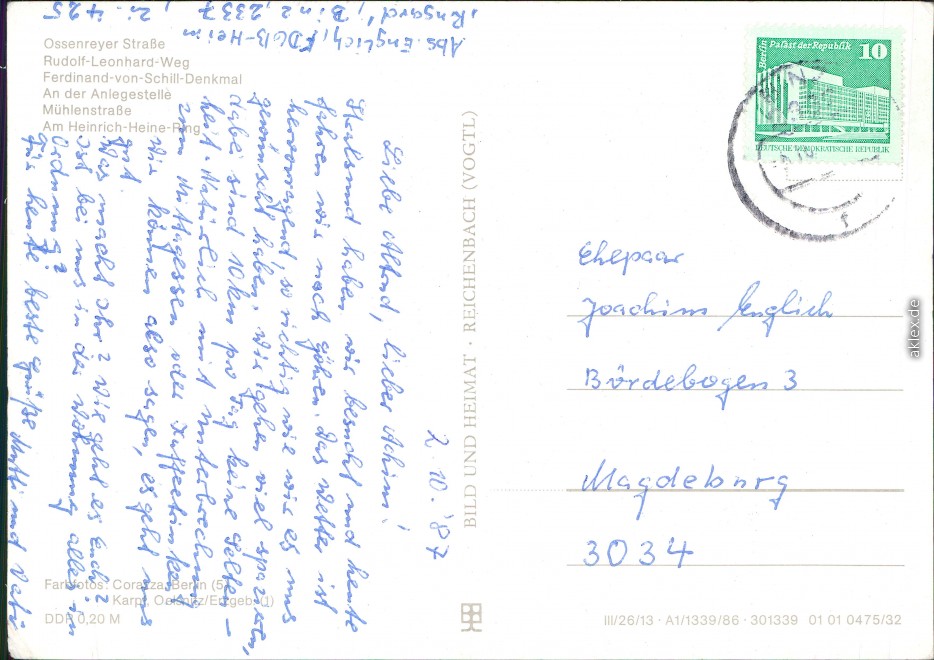 Ossenreyer Straße
Rudolf-Leonhard-Weg
Ferdinand-von-Schill-Denkmal
An der Anlegestelle
Mühlenstraße
Am Heinrich-Heine-Ring
Abs. Englich, FDGB-Heim
"Rugard", Binz, 2337, Zi. 425
2.10.'87
Liebe lieber Achim!
Stralsund haben wir besucht und heute
fahren wir nach Göhren. Das Wetter ist
hervorragend, so richtig wie wir es uns
gewünscht haben. Wir gehen viel spazieren,
dabei sind 10km pro Tag keine Selten-
heit. Natürlich mit Unterbrechung
zum Mittagessen oder Kaffeetrinken.
Wir können also sagen, es geht uns
gut.
Was macht Ihr? Wie geht es Euch?
Ist bei uns in der Wohnung alles in
Ordnung?
Für heute beste Grüße Mutti und Vati
Farbfotos: Corazza, Berlin (5),
Karpf, Oelsnitz/Erzgeb. (1)
DDR 0,20 M
BILD UND HEIMAT · REICHENBACH (VOGTL)
Berlin Palast der Republik 10
DEUTSCHE DEMOKRATISCHE REPUBLIK
Ehepaar
Joachim Englich
Bördebogen 3
Magdeburg
3034
III/26/13 · A1/1339/86 · 301339 01 01 0475/32
aklex.de